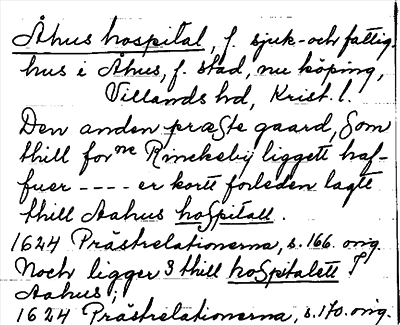 Åhus hospital, f. sjuk- och fattig-
hus i Åhus, f. stad, nu köping,
Villands hd, Krist. l.
Den anden præste gaard, som
thill forne Rinckebÿ liggett haf-
fuer ---- er kortt forleden lagte
thill Aahus hospitall.
1624 Prästrelationerna, s. 166. orig.
Noch ligger thill hospitalett
Aahus;
1624 Prästrelationerna, s. 170. orig.